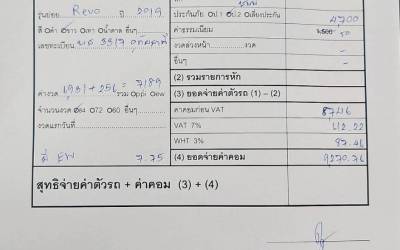 รุ่นย่อย Revo ปี 2019
สี ดำ ขาว เทา น้ำตาล อื่นๆ
เลขทะเบียน
ค่างวด 6931 + 256 = 7189 รวม ppi ew
จำนวนงวด 64 72 60 อื่นๆ
งวดแรกวันที่
EW 7.75
ประกันภัย ป.1 ป.2 เสี่ยงประกัน 4700
ค่าธรรมเนียม 1,500 50
งวดล่วงหน้า งวด -
อื่นๆ -
(2) รวมรายการหัก
(3) ยอดจ่ายค่าตัวรถ (1) – (2)
ค่าคอมก่อน VAT 8746
VAT 7% 612.22
WHT 3% 87.46
(4) ยอดจ่ายค่าคอม 9270.76
สุทธิจ่ายค่าตัวรถ + ค่าคอม (3) + (4)